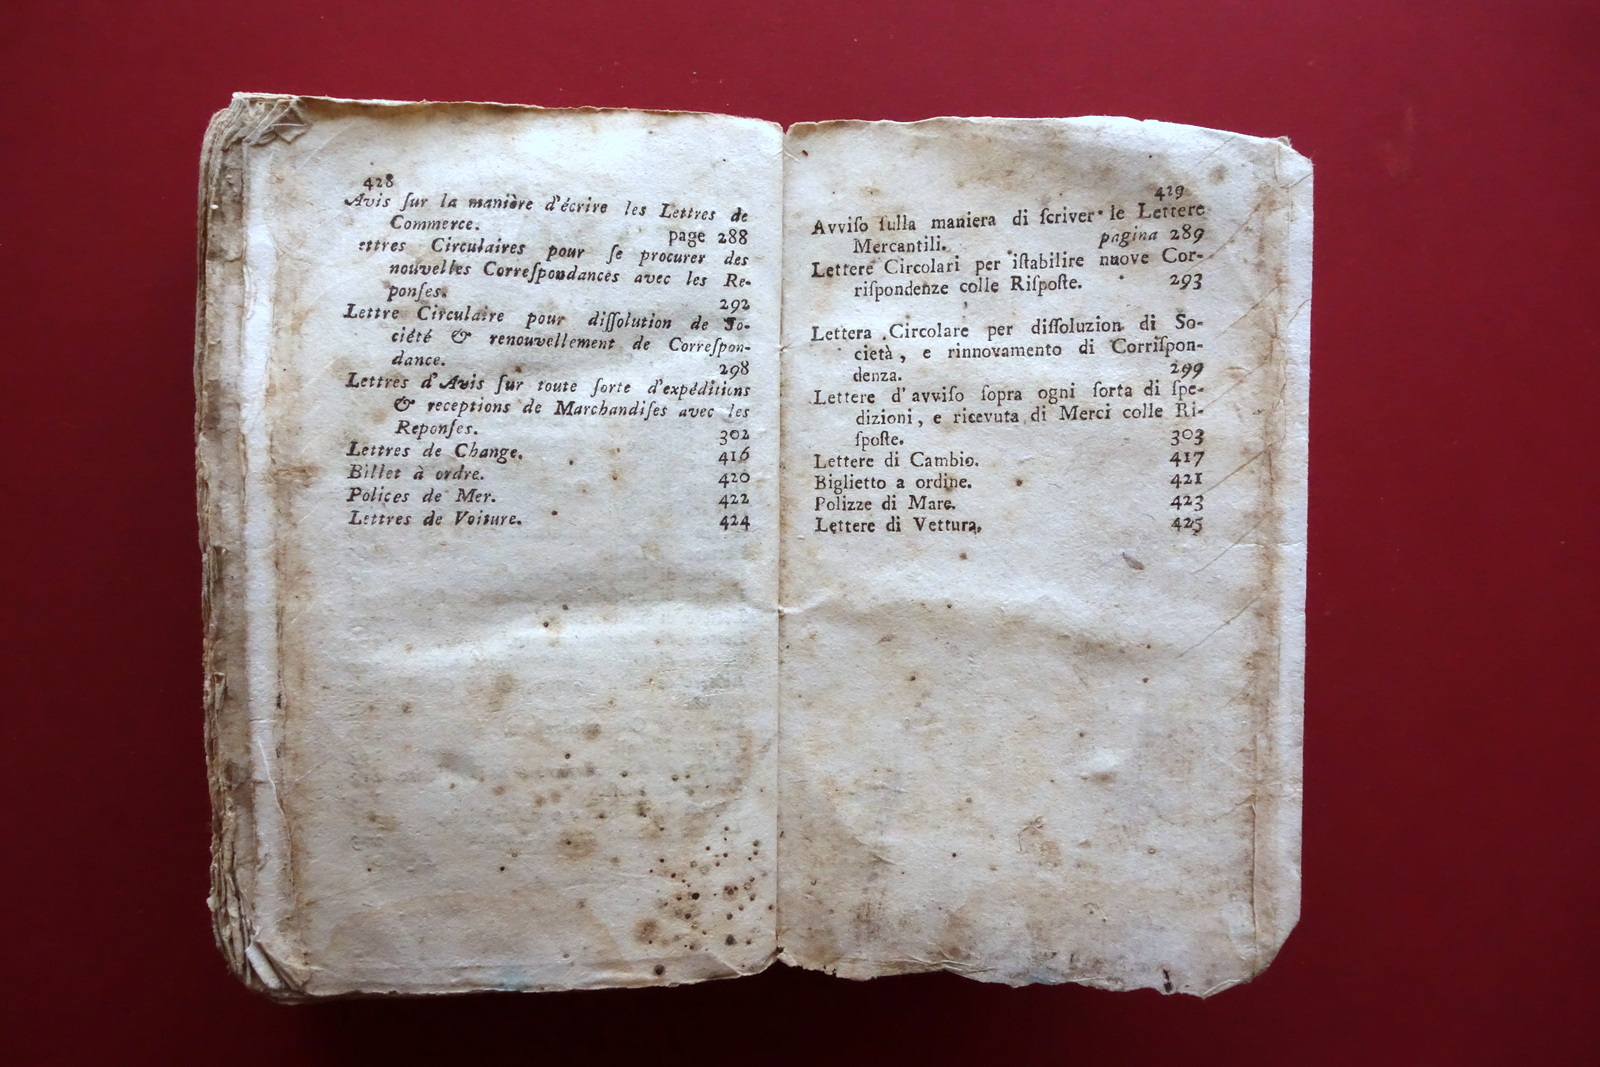 428
Avis ſur la manière d'écrire les Lettres de
Commerce. page 288
ettres Circulaires pour ſe procurer des
nouvelles Correſpondances avec les Re-
ponſes. 292
Lettre Circulaire pour diſſolution de So-
ciété & renouvellement de Correſpon-
dance. 298
Lettres d'Avis ſur toute ſorte d'expéditions
& receptions de Marchandiſes avec les
Reponſes. 302
Lettres de Change. 416
Billet à ordre. 420
Polices de Mer. 422
Lettres de Voiture. 424
429
Avviſo ſulla maniera di ſcriver le Lettere
Mercantili. pagina 289
Lettere Circolari per iſtabilire nuove Cor-
riſpondenze colle Riſpoſte. 293
Lettera Circolare per diſſoluzion di So-
cietà, e rinnovamento di Corriſpon-
denza. 299
Lettere d'avviſo ſopra ogni ſorta di ſpe-
dizioni, e ricevuta di Merci colle Ri-
ſpoſte. 303
Lettere di Cambio. 417
Biglietto a ordine. 421
Polizze di Mare. 423
Lettere di Vettura, 425